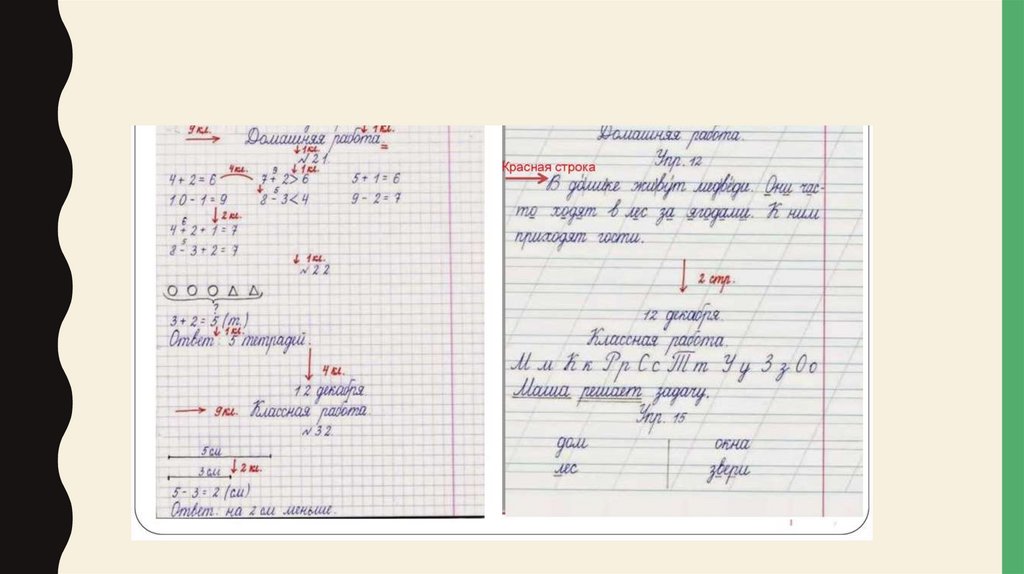 9 кл. 1 кл.
Домашняя работа.
1 кл.
№ 21.
4 кл. 9 1 кл.
4 + 2 = 6 7 + 2 > 6 5 + 1 = 6
5
10 - 1 = 9 8 - 3 < 4 9 - 2 = 7
6 2 кл.
4 + 2 + 1 = 7
5
8 - 3 + 2 = 7
1 кл.
№ 22
?
3 + 2 = 5 (т.)
1 кл.
Ответ: 5 тетрадей.
4 кл.
12 декабря.
9 кл. Классная работа
№ 32.
5 см
3 см 2 кл.
5 - 3 = 2 (см)
Ответ: на 2 см меньше.
Домашняя работа.
Упр. 12
Красная строка
В домике живут медведи. Они час-
то ходят в лес за ягодами. К ним
приходят гости.
2 стр.
12 декабря.
Классная работа.
М м К к Р р С с Т т У у З з О о
Маша решает задачу.
Упр. 15
дом окна
лес звери